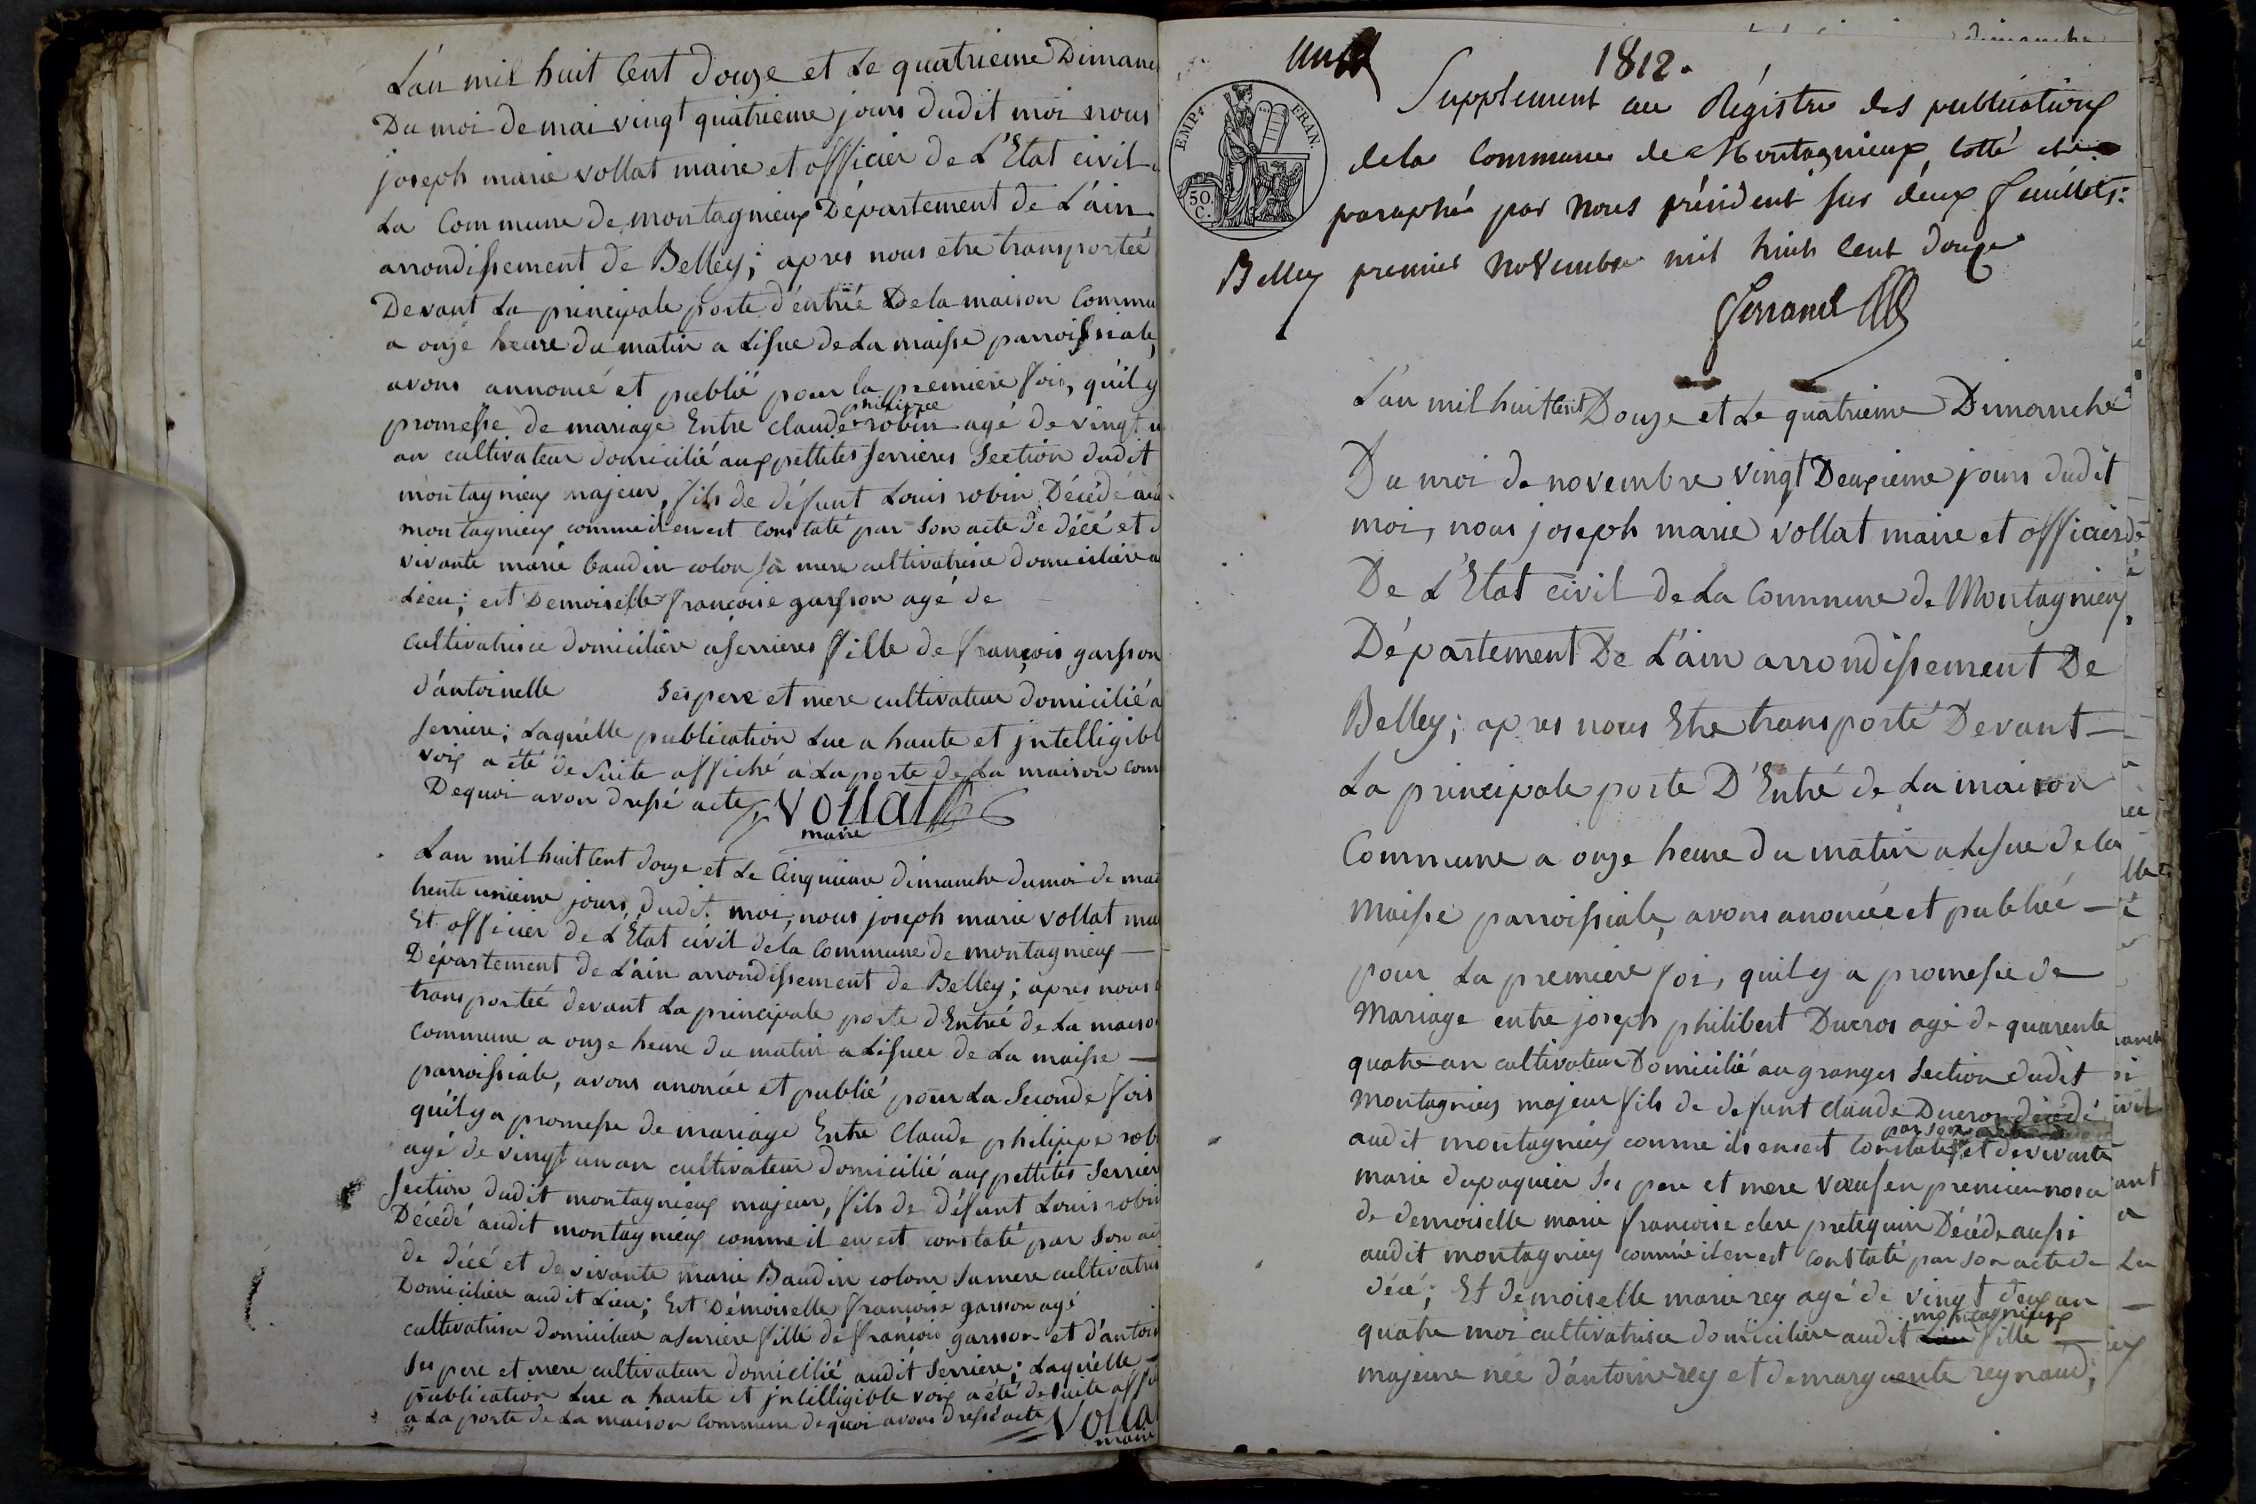 L'an mil huit Cent douze et Le quatrieme Dimanc
Du moi de mai vingt quatrieme jours dudit moi nous
joseph marie vollat maire et officier de L'Etat civil
La Commune de montagnieux Département de L'ain
arrondissement de Belley; apres nous etre transporteé
Devant La principale porte d'entrée De la maison Commu
a onze heure du matin a Lisue de La maisse parroissiale,
avons annoncé et publié pour la premiere fois, qu'il y
philippe
promesse de mariage Entre claude robin agé de vingt u
an cultivateur domicilié aux pettites serrieres Section dudit
montagnieux majeur, fils de défunt Louis robin Décédé au
montagnieux comme il en est constaté par Son acte de décé et d
vivante marie baudin colon sa mere cultivatrice domiciliere a
Lieu; est Demoiselle françoise garsson agé de
cultivatrice domiciliere a serrieres fille de françois garsson
d'antoinelle ses pere et mere cultivateur domicilié a
serriere; Laquelle publication Lue a haute et jntelligibl
voix a été de Suite affiché a La porte de La maison com
De quoi avon dressé acte, vollat
maire
L'an mil huit Cent douze et Le Cinquieme dimanche du moi de mai
trente unieme jours dudit moi, nous joseph marie vollat mai
Et officier de L'État civil de la Commune de montagnieux
Département de L'ain arrondissement de Belley; apres nous
transporteé devant La principale porte d'Entré de La maiso
commune a onze heure du matin a Lisuee de La maisse
parroissiale, avons anoncée et publié pour La Seconde fois
qu'il y a promesse de mariage Entre Claude philippe rob
agé de vingt un an cultivateur domicilié aux pettites Serrier
Section dudit montagnieux majeur, fils de défunt Louis robin
Décédé audit montagnieux comme il en est constaté par Son ac
de décé et de vivante marie Baudin colon sa mere cultivatri
Domiciliere audit Lieu; Est Démoiselle françoise garsson agé
cultivatrice domiciliere a serriere fille de françois garsson et d'antoi
Ses pere et mere cultivateur domicilié audit Serriere; Laquelle
publication Lue a haute et jntelligible voix a été de suite affi
a La porte de La maison Commune de quoi avons dressé acte Volla
maire
1812.
EMP. FRAN.
50. C.
Supplement au Régistre des publications
de la Commune de Montagnieux, cotté et
paraphé par Nous président sur deux feuillets:
Belley premier Novembre mil huit Cent douze
Ferrand
L'an mil huit Cent Douze et Le quatrieme Dimanche
Du moi de novembre vingt Deuxieme jours dudit
moi, nous joseph marie vollat maire et officier de
De L'Etat civil de La Commune de Montagnieux
Département De L'ain arrondissement De
Belley; apres nous Etre transporté Devant
La principale porte D'Entré de La maison
Commune a onze heure du matin a Lisue de la
Maisse parroissiale, avons anoncée et publieé
pour La premiere foi, quil y a promesse de
Mariage entre joseph philibert Ducros agé de quarente
quatre an cultivateur Domicilié au granges Section dudit
Montagnieux majeur fils de defunt claude Ducros décédé
par son acte
audit montagnieux comme il en est Constaté et de vivante
marie dupaquier Ses pere et mere en premier
de demoiselle marie francoise Décédé aussi
audit montagnieux comme il en est Constaté par son acte de
décé; Et demoiselle marie rey agé de vingt deux an
montagnieux
quatre moi cultivatrice domiciliere audit Lieu fille
majeure née d'antoine rey et de marguerite reynaud,